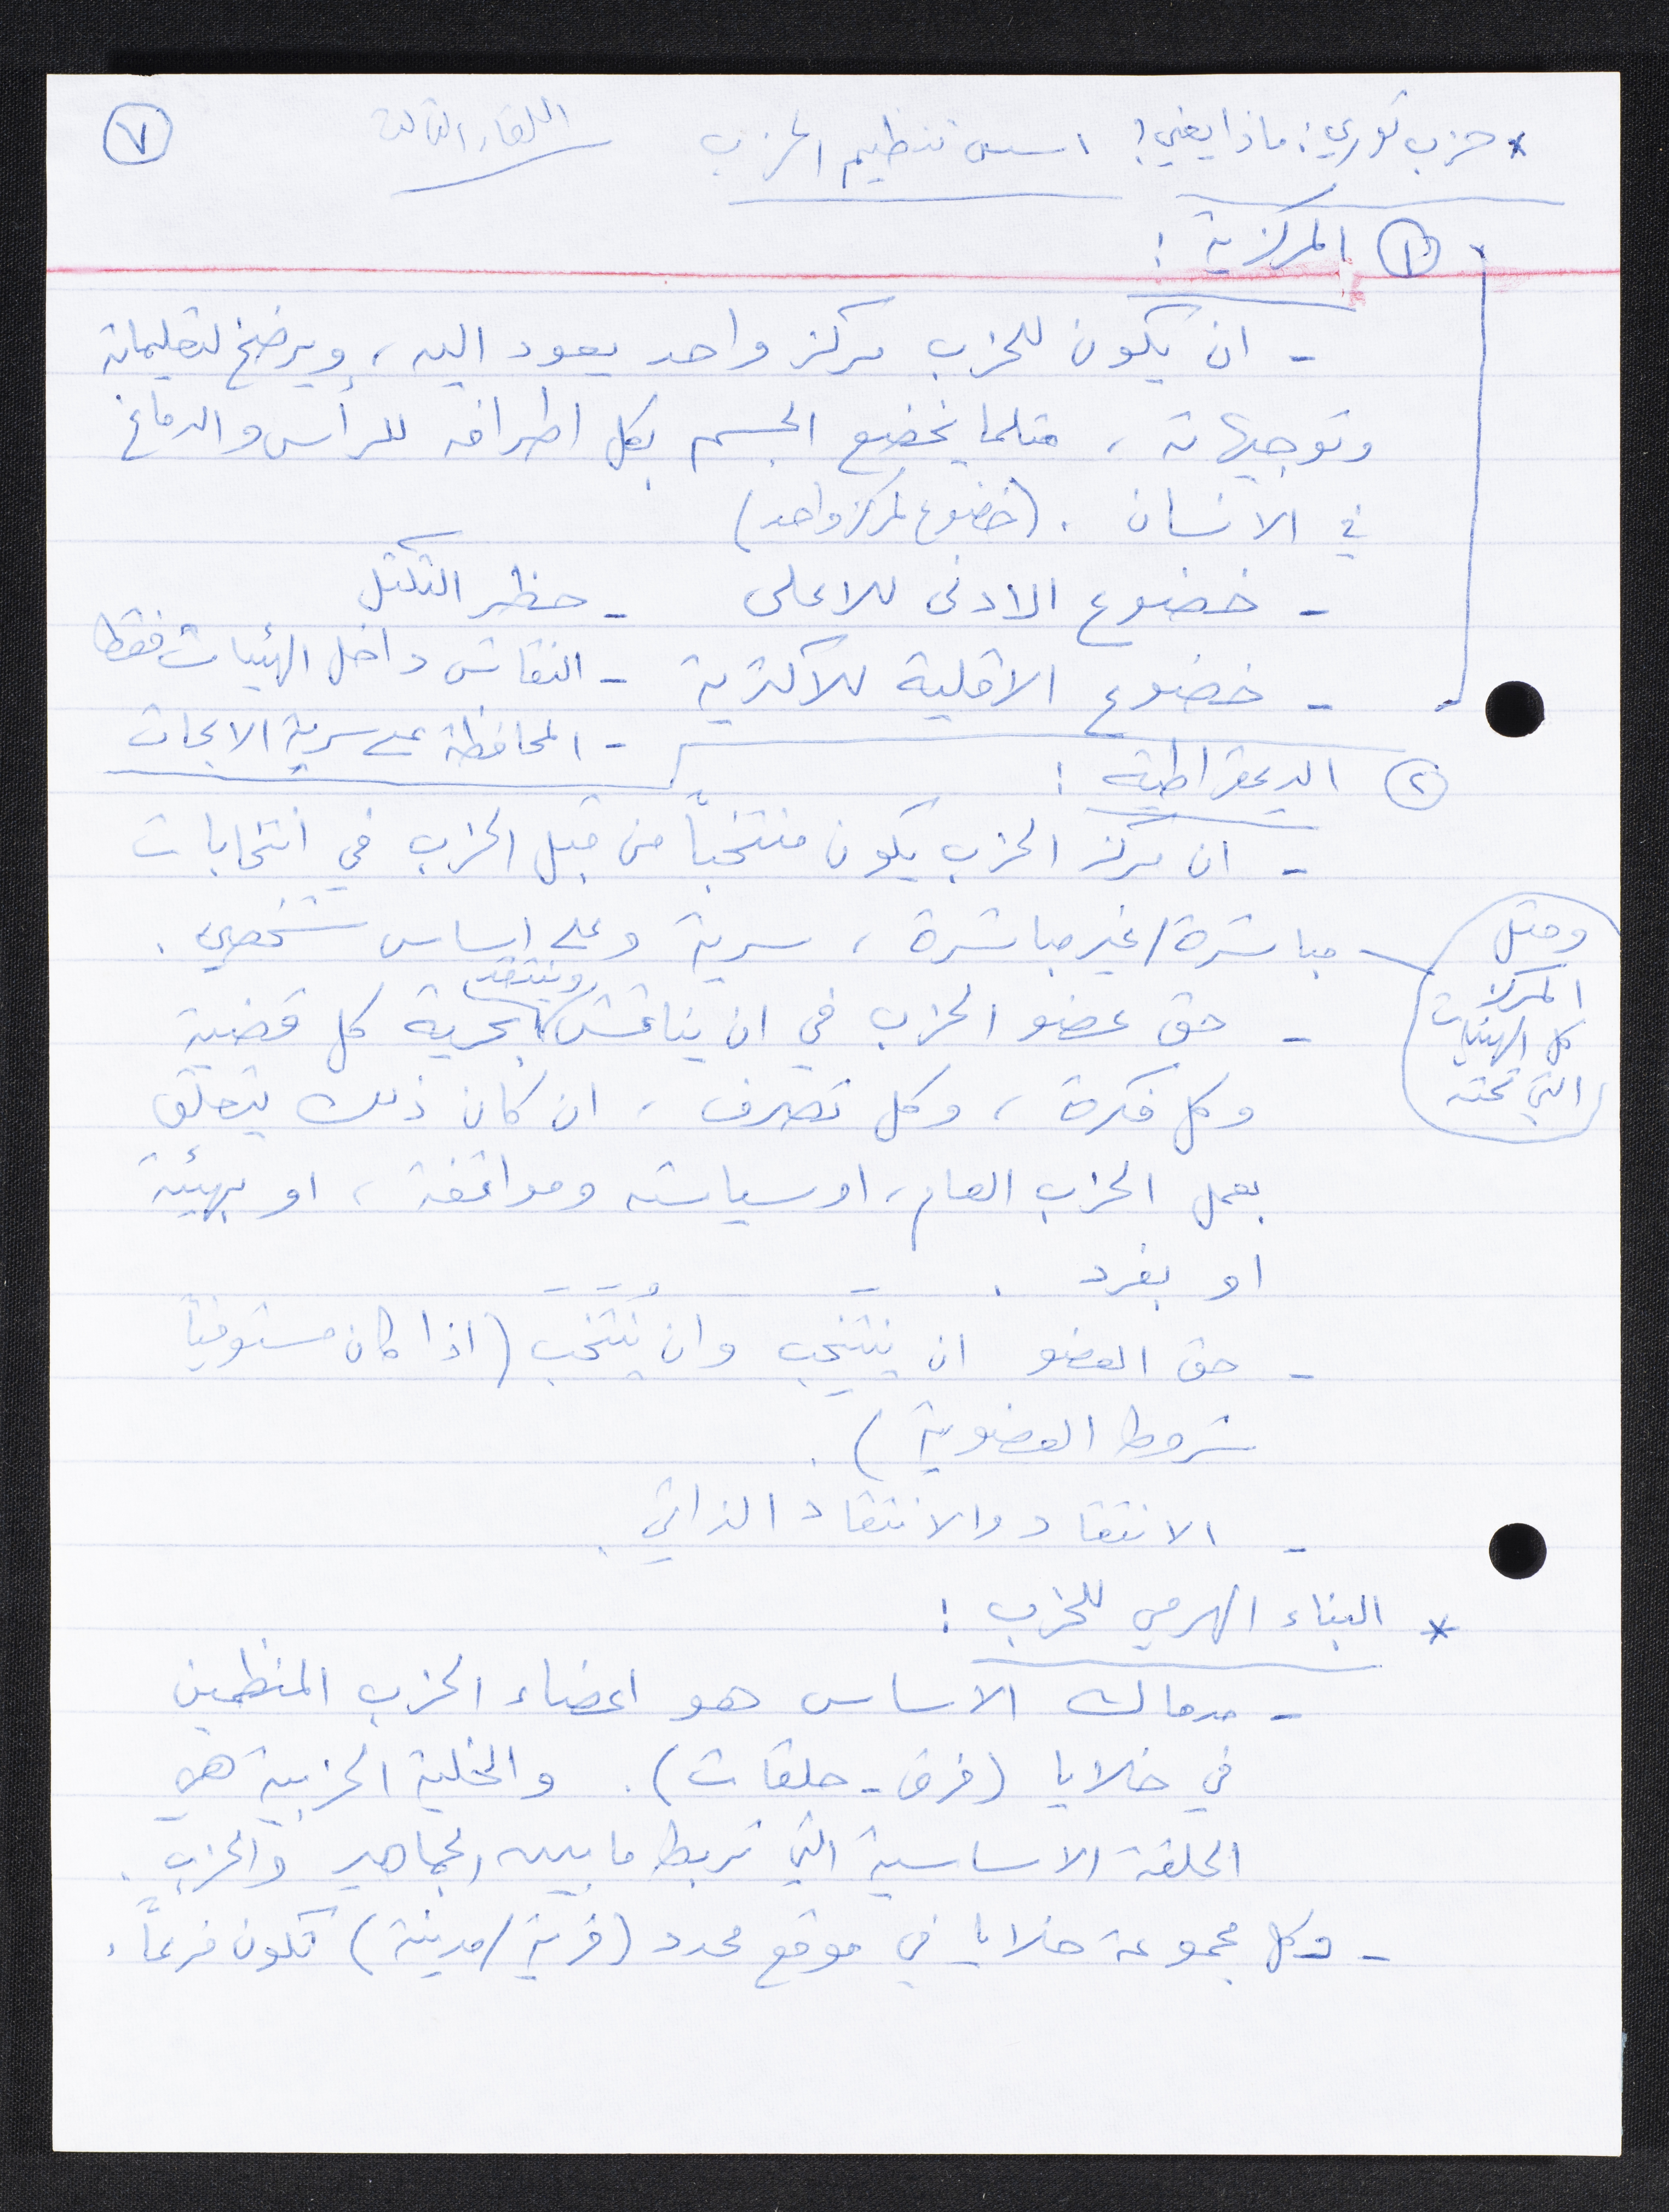 * حزب ثوري: ماذا يعني؟ اسس تنظيم الحزب اللقاء الثالث ٧
١ المركزية :
- ان يكون للحزب مركز واحد يعود اليه، ويرضخ لتعليماته
وتوجيهاته ، مثلما يخضع الجسم بكل اطرافه للرأس والدماغ
في الانسان . (خضوع لمركز واحد)
- خضوع الادنى للاعلى - حظر التكتل
- خضوع الاقلية للاكثرية - النقاش داخل الهيئات فقط
- المحافظة على سرية الابحاث
٢ الديمقراطية :
- ان مركز الحزب يكون منتخباً من قبل الحزب في انتخابات
مباشرة/غير مباشرة ، سرية وعلى اساس شخصي .
ومثل
المركز
كل الهيئات
التي تحته
- حق عضو الحزب في ان يناقش وينتقد بحرية كل قضية
وكل فكرة ، وكل تصرف ، ان كان ذلك يتعلق
بعمل الحزب العام، او سياسته ومواقفه ، او بهيئة
او بفرد .
- حق العضو ان يَنتخِب وان يُنتَخَب (اذا كان مستوفياً
شروط العضوية) .
- الانتقاد والانتقاد الذاتي .
* البناء الهرمي للحزب :
- مدماك الاساس هو اعضاء الحزب المنظمين
في خلايا (فرق - حلقات). والخلية الحزبية هي
الحلقة الاساسية التي تربط ما بين الجماهير والحزب .
- وكل مجموعة خلايا في موقع محدد (قرية/مدينة) تكون فرعاً،